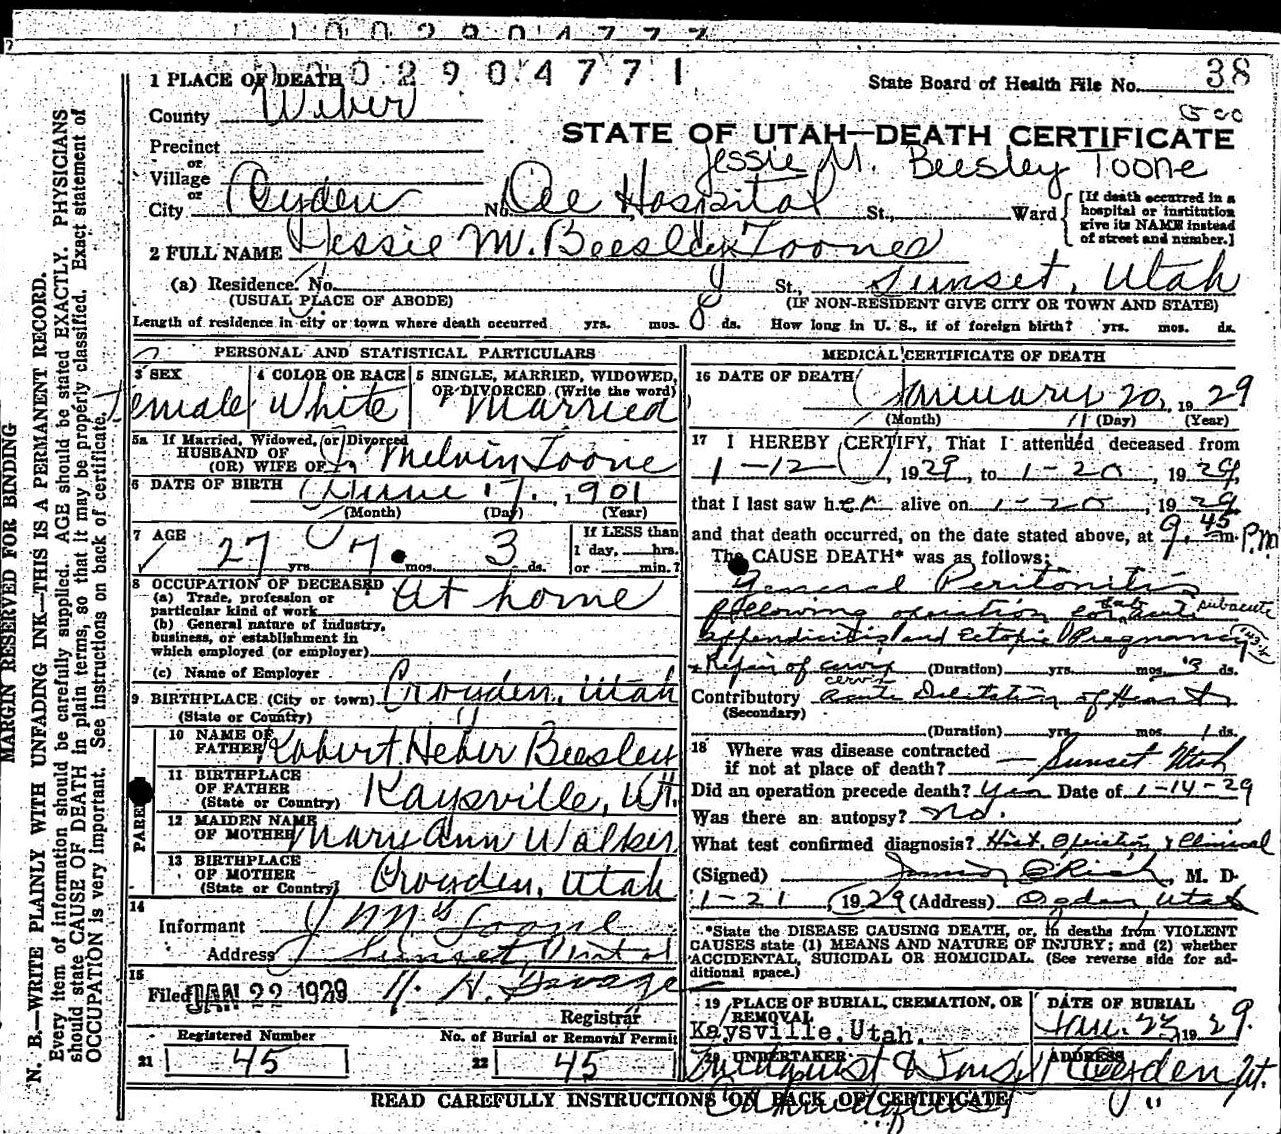 1002904777
1002904771
1 PLACE OF DEATH
State Board of Health File No. 38
County Weber
STATE OF UTAH—DEATH CERTIFICATE
Precinct
or
Village
Jessie M. Beesley Toone
or
City Ogden No. Dee Hospital St., Ward
[If death occurred in a
hospital or institution
give its NAME instead
of street and number.]
2 FULL NAME Jessie M. Beesley Toone
(a) Residence. No. St., Sunset, Utah
(USUAL PLACE OF ABODE) (IF NON-RESIDENT GIVE CITY OR TOWN AND STATE)
Length of residence in city or town where death occurred yrs. mos. 8 ds. How long in U. S., if of foreign birth? yrs. mos. ds.
PERSONAL AND STATISTICAL PARTICULARS
3 SEX 4 COLOR OR RACE 5 SINGLE, MARRIED, WIDOWED,
OR DIVORCED (Write the word)
Female White Married
5a If Married, Widowed, or Divorced
HUSBAND OF
(OR) WIFE OF J. Melvin Toone
6 DATE OF BIRTH June 17, 1901
(Month) (Day) (Year)
7 AGE 27 yrs. 7 mos. 3 ds.
If LESS than
1 day, hrs.
or min.?
8 OCCUPATION OF DECEASED At home
(a) Trade, profession or
particular kind of work
(b) General nature of industry,
business, or establishment in
which employed (or employer)
(c) Name of Employer
9 BIRTHPLACE (City or town) Croyden, Utah
(State or Country)
PARENTS
10 NAME OF
FATHER Robert Heber Beesley
11 BIRTHPLACE
OF FATHER Kaysville, Ut.
(State or Country)
12 MAIDEN NAME
OF MOTHER Mary Ann Walker
13 BIRTHPLACE
OF MOTHER Croyden, Utah
(State or Country)
14
Informant J M Toone
Address Sunset, Utah
15
Filed JAN 22 1929
Registrar
Registered Number No. of Burial or Removal Permit
21 45 22 45
MEDICAL CERTIFICATE OF DEATH
16 DATE OF DEATH January 20, 1929
(Month) (Day) (Year)
17 I HEREBY CERTIFY, That I attended deceased from
1-12, 1929, to 1-20, 1929,
that I last saw her alive on 1-20, 1929
and that death occurred, on the date stated above, at 9.45 m. P.m
The CAUSE DEATH* was as follows:
General Peritonitis
following operation for acute subacute
appendicitis and Ectopic Pregnancy
Repair of cervix (Duration) yrs. mos. 3 ds.
cervix
Contributory Acute Dilitation of Heart
(Secondary)
(Duration) yrs. mos. 1 ds.
18 Where was disease contracted
if not at place of death? Sunset Utah
Did an operation precede death? Yes Date of 1-14-29
Was there an autopsy? No.
What test confirmed diagnosis? Hist. Operation & Clinical
(Signed) Rich, M. D.
1-21, 1929 (Address) Ogden Utah
*State the DISEASE CAUSING DEATH, or, in deaths from VIOLENT
CAUSES state (1) MEANS AND NATURE OF INJURY; and (2) whether
ACCIDENTAL, SUICIDAL OR HOMICIDAL. (See reverse side for ad-
ditional space.)
19 PLACE OF BURIAL, CREMATION, OR
REMOVAL
Kaysville, Utah.
DATE OF BURIAL
Jan. 23, 1929.
20 UNDERTAKER
Lindquist & Sons
ADDRESS
Ogden Ut.
READ CAREFULLY INSTRUCTIONS ON BACK OF CERTIFICATE
MARGIN RESERVED FOR BINDING
N. B.—WRITE PLAINLY WITH UNFADING INK—THIS IS A PERMANENT RECORD.
Every item of information should be carefully supplied. AGE should be stated EXACTLY. PHYSICIANS
should state CAUSE OF DEATH in plain terms, so that it may be properly classified. Exact statement of
OCCUPATION is very important. See instructions on back of certificate.